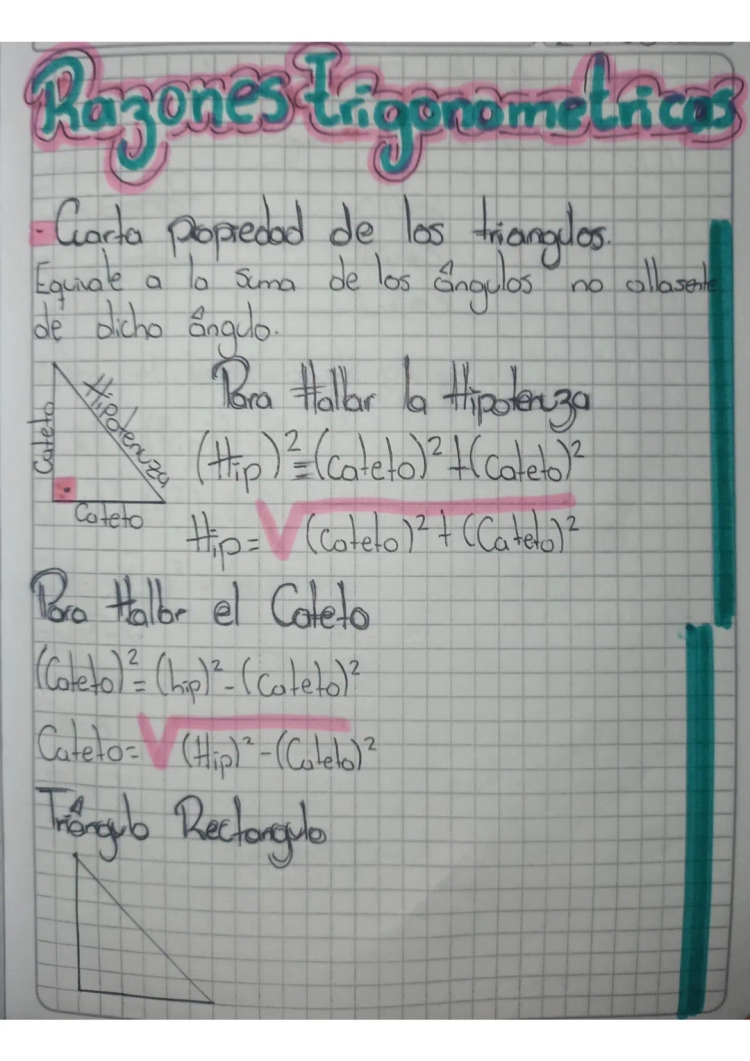 Razones Trigonometricas
- Cuarta popiedad de los triangulos.
Equivale a la suma de los ángulos no allasente
de dicho ángulo.
Cateto
Hipotenuza
Cateto
Para Hallar la Hipotenza
(Hip)²=(Cateto)²+(Cateto)²
Hip=√(Cateto)²+(Cateto)²
Para Hallar el Cateto
(Cateto)²=(hip)²-(Cateto)²
Cateto=√(Hip)²-(Cateto)²
Triángulo Rectangulo